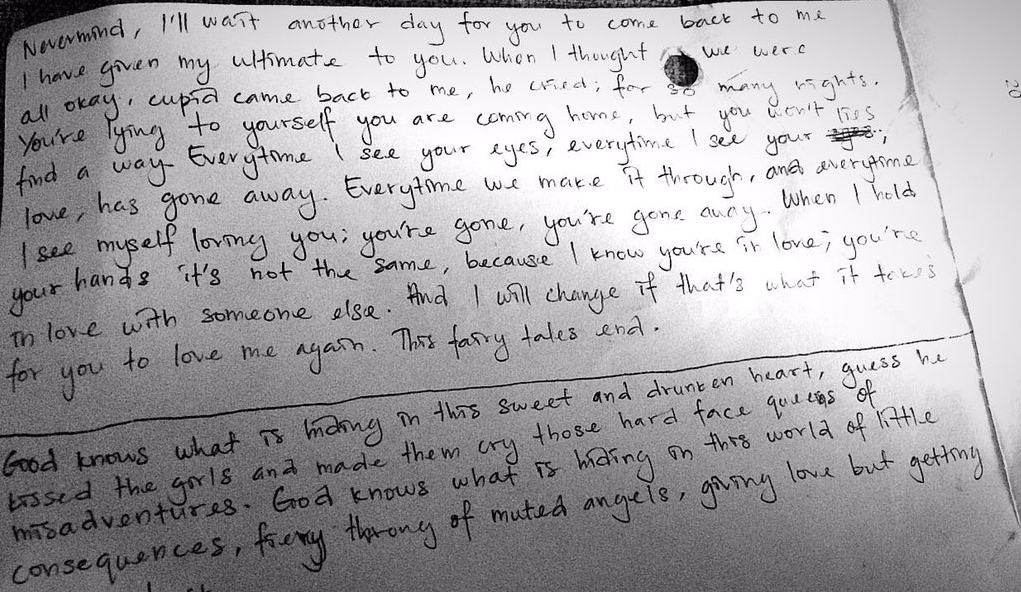 Nevermind, I'll wait another day for you to come back to me
I have given my ultimate to you. When I thought we were
all okay, cupid came back to me, he cried; for so many nights.
You're lying to yourself you are coming home, but you won't
find a way. Everytime I see your eyes, everytime I see your lies;
love, has gone away. Everytime we make it through, and everytime
I see myself loving you; you're gone, you're gone away. When I hold
your hands it's not the same, because I know you're in love; you're
in love with someone else. And I will change if that's what it takes
for you to love me again. This fairy tales end.
God knows what is hiding in this sweet and drunken heart, guess he
kissed the girls and made them cry those hard face queens of
misadventures. God knows what is hiding in this world of little
consequences, fiery throng of muted angels, giving love but getting